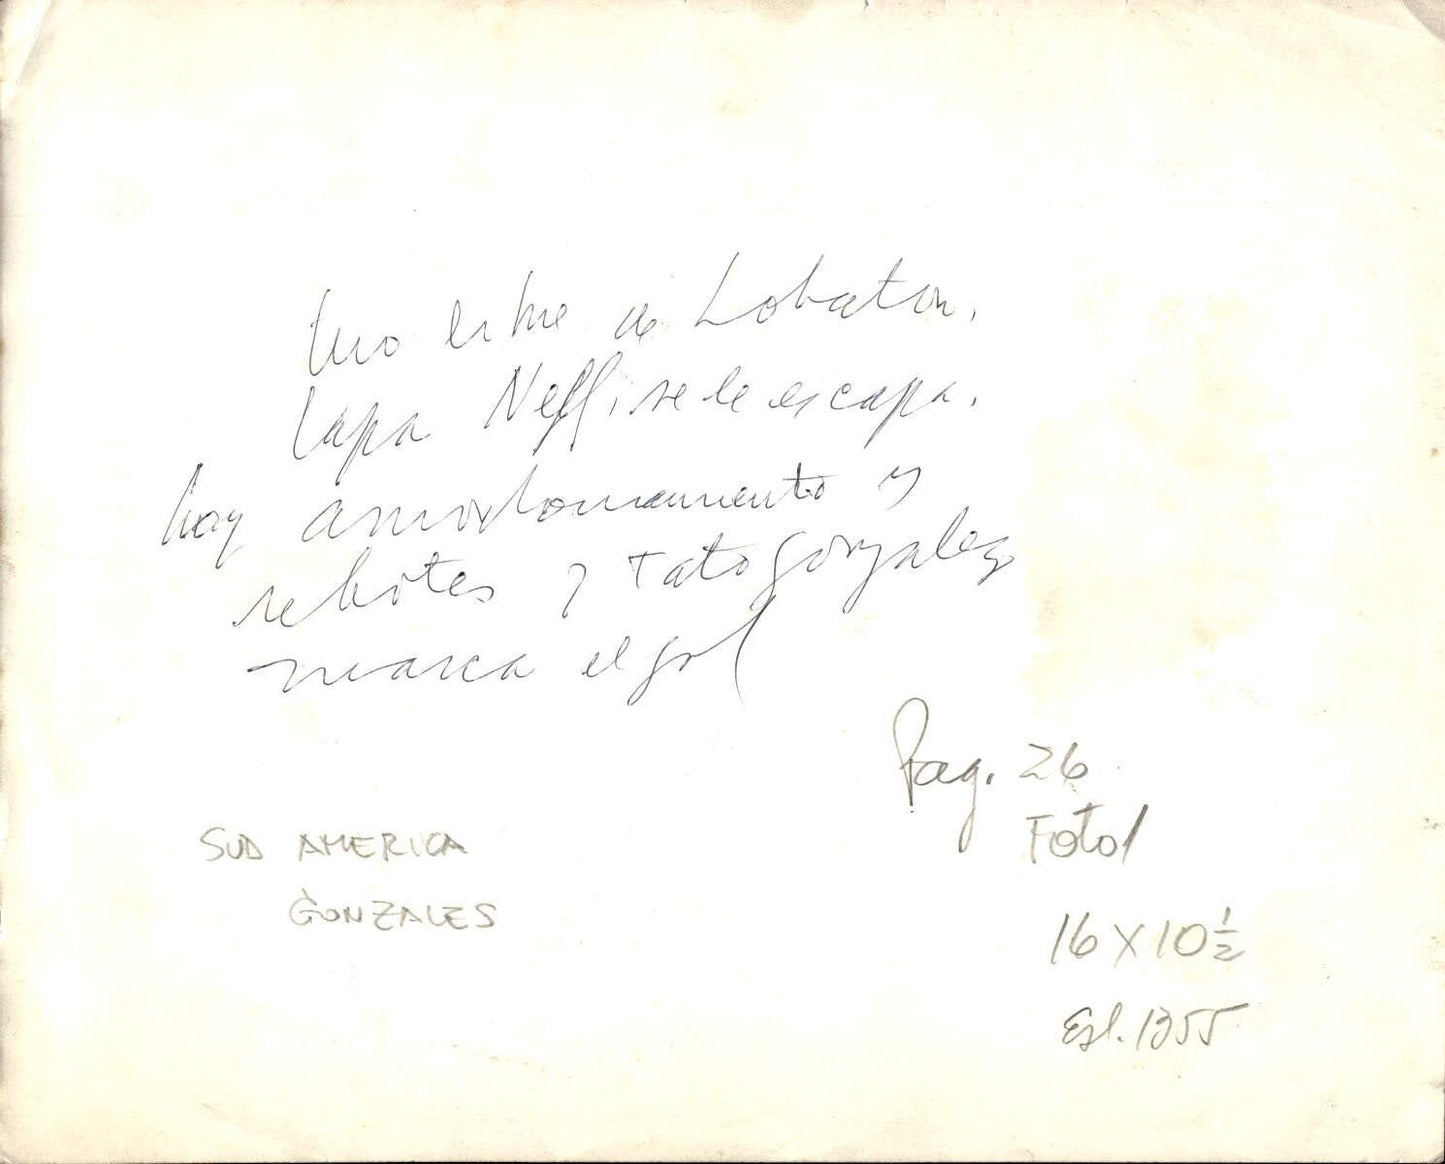 tiro libre de Lobaton.
tapa Neffi, se le escapa.
hay amontonamiento y
rebotes y Tato Gonzalez
marca el gol
Pag. 26
Foto 1
SUD AMERICA
GONZALES
16 X 10 ½
Esl. 1355